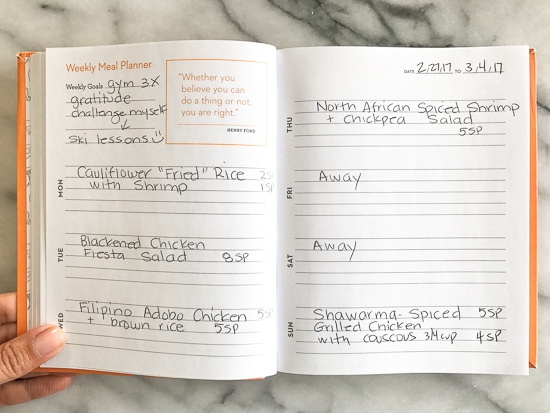 Weekly Meal Planner
Weekly Goals gym 3X
gratitude
challenge myself
↓
ski lessons
"Whether you
believe you can
do a thing or not,
you are right."
HENRY FORD
MON
Cauliflower "Fried" Rice 2SP
with Shrimp 1SP
TUE
Blackened Chicken
Fiesta Salad 8SP
WED
Filipino Adobo Chicken 5SP
+ brown rice 5SP
DATE 2.27.17 TO 3.4.17
THU
North African Spiced Shrimp
+ Chickpea Salad
5SP
FRI
Away
SAT
Away
SUN
Shawarma-Spiced 5SP
Grilled Chicken
with couscous 3/4 cup 4SP